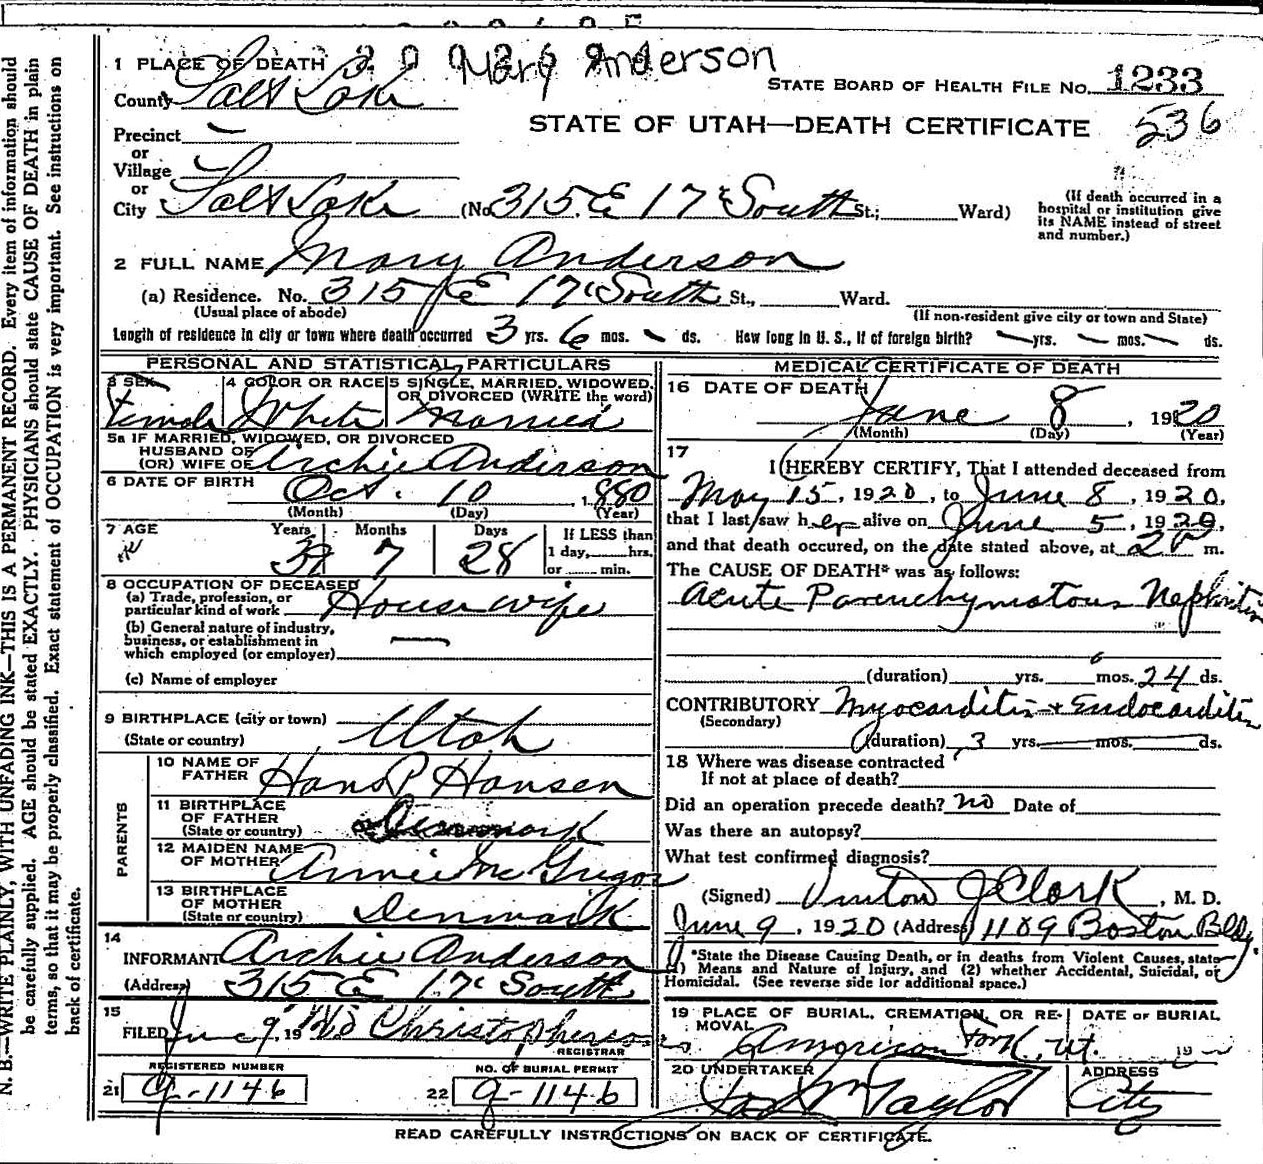 N. B.—WRITE PLAINLY, WITH UNFADING INK—THIS IS A PERMANENT RECORD. Every item of information should
be carefully supplied. AGE should be stated EXACTLY. PHYSICIANS should state CAUSE OF DEATH in plain
terms, so that it may be properly classified. Exact statement of OCCUPATION is very important. See instructions on
back of certificate.
Mary Anderson
1 PLACE OF DEATH
STATE BOARD OF HEALTH FILE NO. 1233
County Salt Lake
STATE OF UTAH—DEATH CERTIFICATE 536
Precinct —
or
Village —
or
City Salt Lake (No 315 E 17 South St.; Ward)
(If death occurred in a
hospital or institution give
its NAME instead of street
and number.)
2 FULL NAME Mary Anderson
(a) Residence. No. 315 E 17 South St., Ward.
(Usual place of abode)
(If non-resident give city or town and State)
Length of residence in city or town where death occurred 3 yrs. 6 mos. – ds. How long in U. S., if of foreign birth? – yrs. – mos. – ds.
PERSONAL AND STATISTICAL PARTICULARS
3 SEX 4 COLOR OR RACE 5 SINGLE, MARRIED, WIDOWED,
OR DIVORCED (WRITE the word)
Female White Married
5a IF MARRIED, WIDOWED, OR DIVORCED
HUSBAND OF
(OR) WIFE OF Archie Anderson
6 DATE OF BIRTH Oct. 10 1880
(Month) (Day) (Year)
7 AGE Years Months Days If LESS than
1 day, hrs.
or min.
39 7 28
8 OCCUPATION OF DECEASED
(a) Trade, profession, or
particular kind of work Housewife
(b) General nature of industry,
business, or establishment in
which employed (or employer) —
(c) Name of employer
9 BIRTHPLACE (city or town)
(State or country) Utah
PARENTS
10 NAME OF
FATHER Hans P Hansen
11 BIRTHPLACE
OF FATHER
(State or country) Denmark
12 MAIDEN NAME
OF MOTHER Annie McGregor
13 BIRTHPLACE
OF MOTHER
(State or country) Denmark
14
INFORMANT Archie Anderson
(Address) 315 E 17 South
15
FILED June 9, 19 Christopherson
REGISTRAR
REGISTERED NUMBER
21 g-1146
NO. OF BURIAL PERMIT
22 g-1146
MEDICAL CERTIFICATE OF DEATH
16 DATE OF DEATH
June 8, 1920
(Month) (Day) (Year)
17
I HEREBY CERTIFY, That I attended deceased from
May 15, 1920, to June 8, 1920,
that I last saw her alive on June 5, 1920,
and that death occured, on the date stated above, at 2 P m.
The CAUSE OF DEATH* was as follows:
Acute Parenchymatous Nephritis
(duration) yrs. mos. 24 ds.
CONTRIBUTORY Myocarditis + Endocarditis
(Secondary)
(duration) 3 yrs. mos. ds.
18 Where was disease contracted
If not at place of death?
Did an operation precede death? no Date of
Was there an autopsy?
What test confirmed diagnosis?
(Signed) Vinton J Clark, M. D.
June 9, 1920 (Address) 1109 Boston Bldg.
*State the Disease Causing Death, or in deaths from Violent Causes, state
(1) Means and Nature of Injury, and (2) whether Accidental, Suicidal, or
Homicidal. (See reverse side for additional space.)
19 PLACE OF BURIAL, CREMATION, OR RE-
MOVAL
DATE OF BURIAL
American Fork, Ut. 19
20 UNDERTAKER ADDRESS
Taylor City
READ CAREFULLY INSTRUCTIONS ON BACK OF CERTIFICATE.